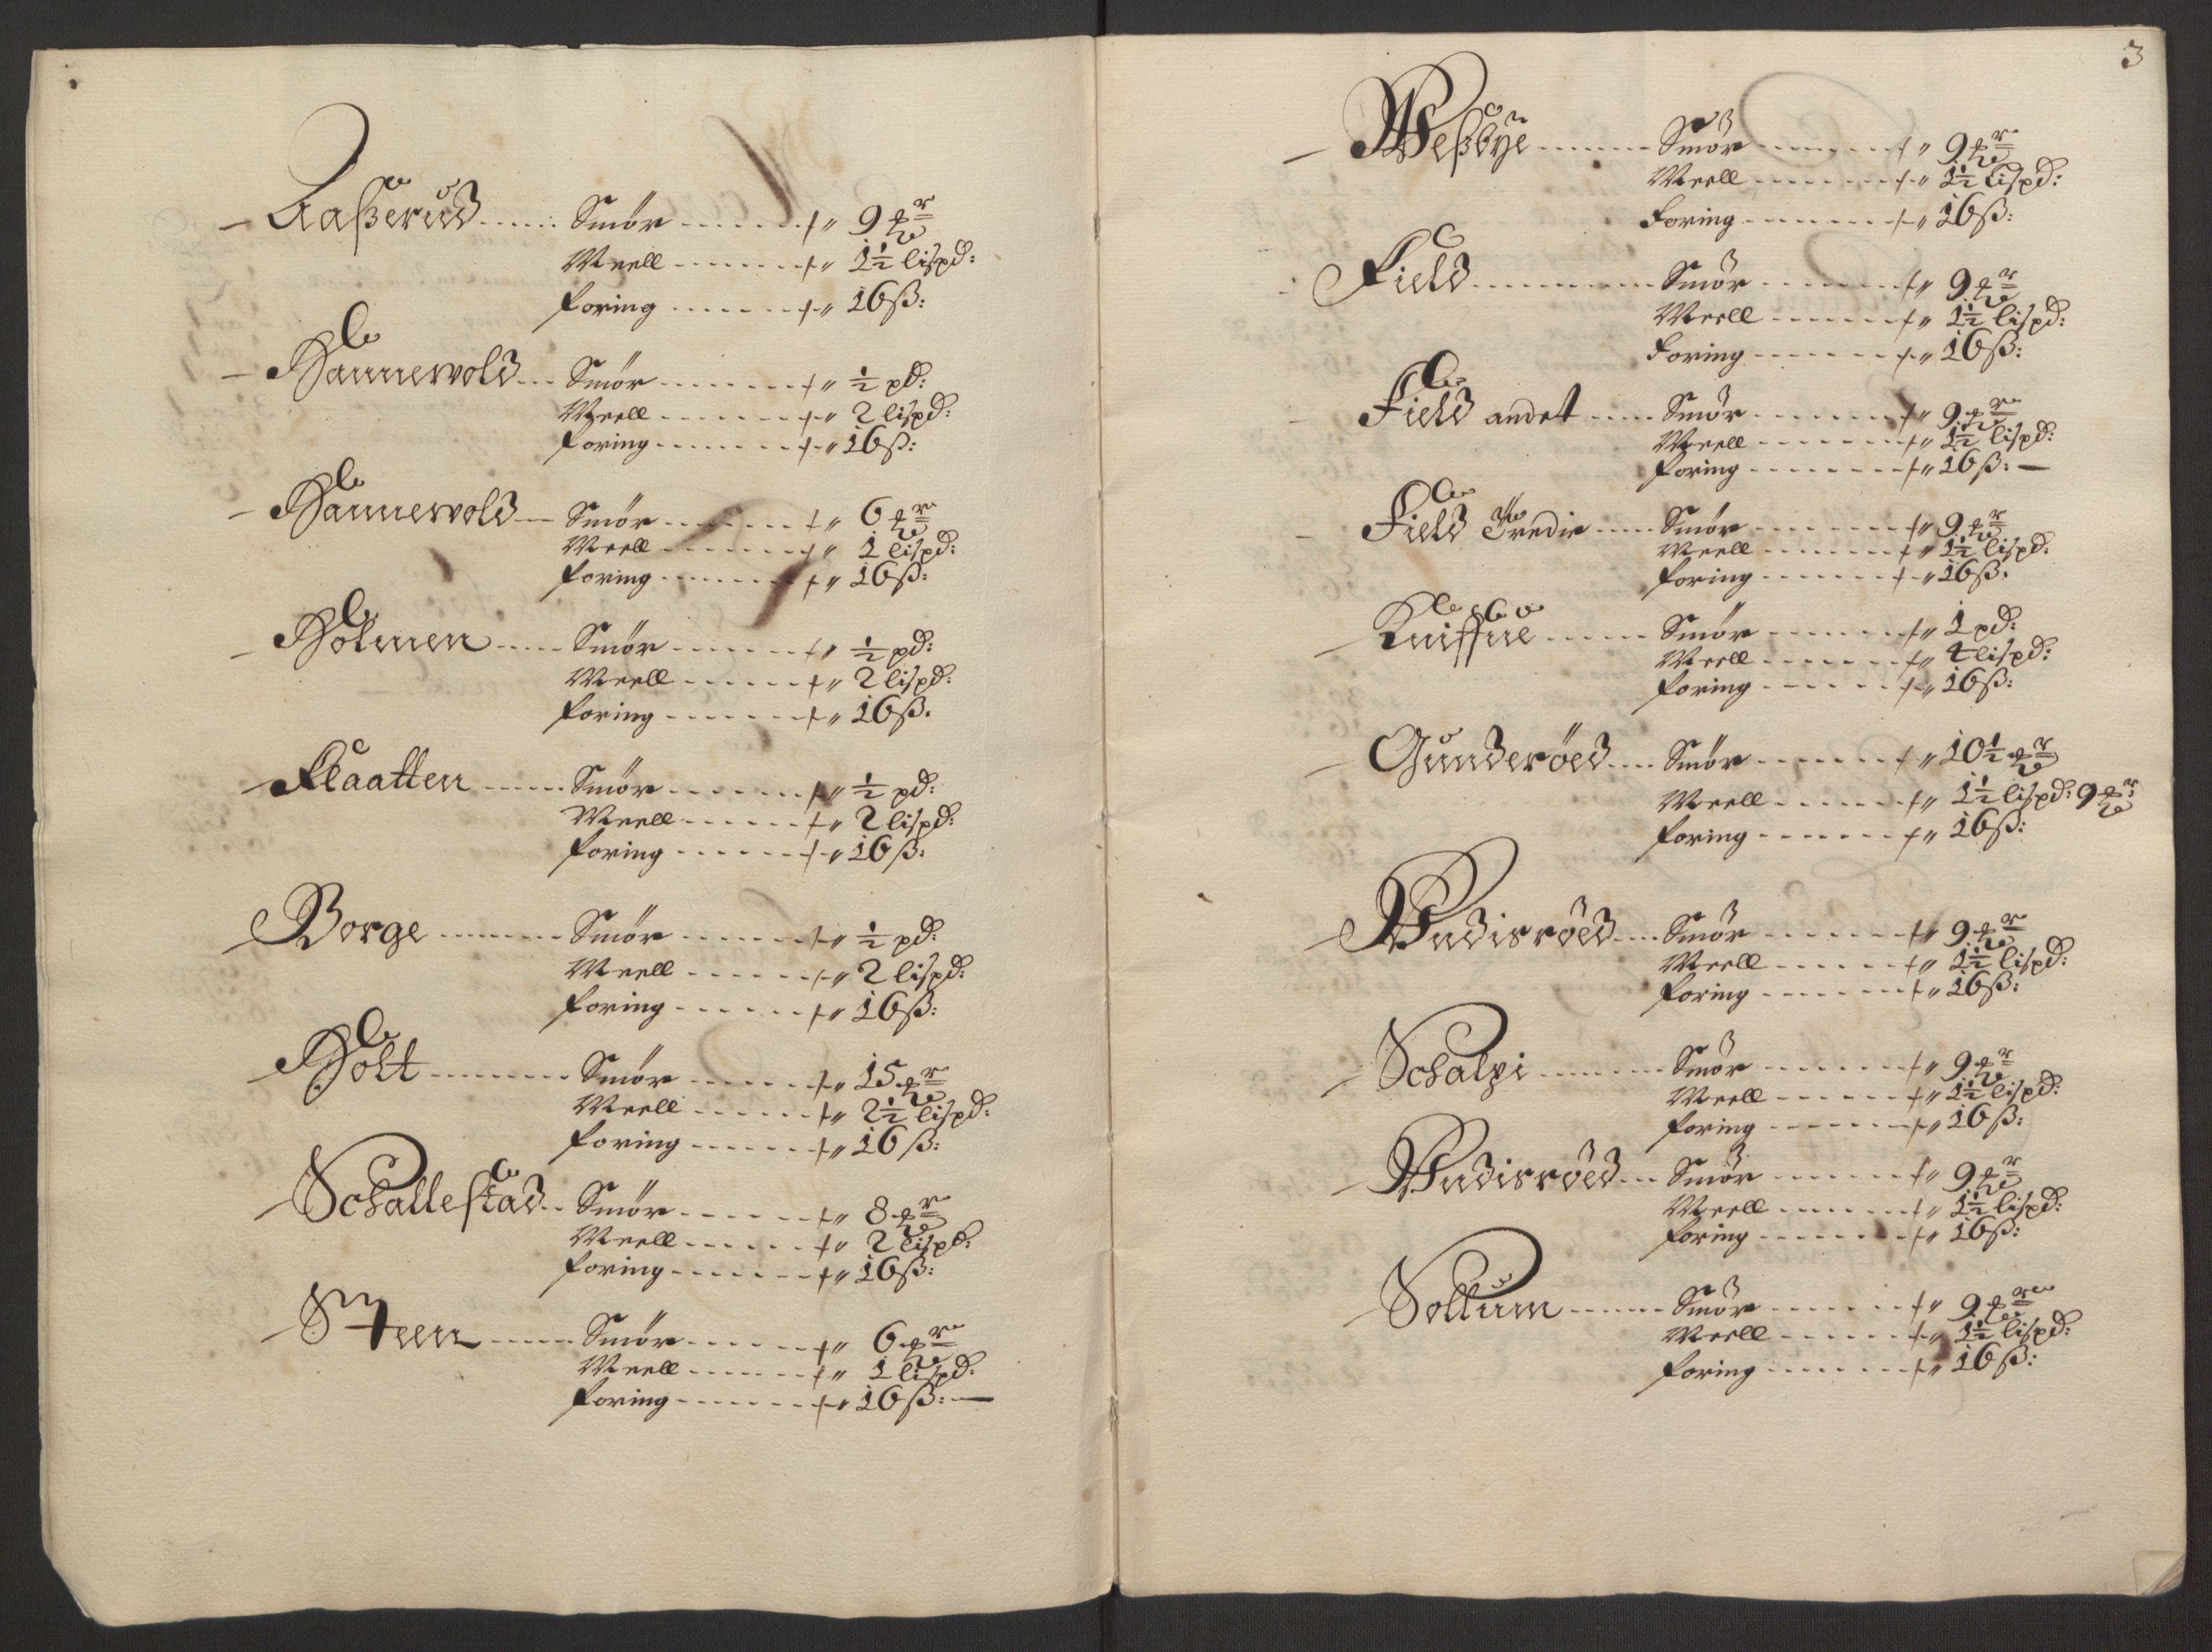 Aaßerud Smör 9 ℔r
Meell 1½ lispd:
foring 16 ß:
Hannewold Smör ½ pd:
Meell 2 lispd:
foring 16 ß:
Hannewold Smör 6 ℔r
Meell 1 lispd:
foring 16 ß:
Holmen Smör ½ pd:
Meell 2 lispd:
foring 16 ß.
Flaatten Smör ½ pd:
Meell 2 lispd:
foring 16 ß:
Borge Smör ½ pd:
Meell 2 lispd:
foring 16 ß:
Holt Smör 15 ℔r
Meell 2½ lispd:
foring 16 ß:
Schallestad Smör 8 ℔r
Meell 2 lispd:
foring 16 ß:
Steen Smör 6 ℔r
Meell 1 lispd:
foring 16 ß:
3
Weßbÿe Smör 9 ℔r
Meell 1½ lispd:
Foring 16 ß:
Field Smör 9 ℔r
Meell 1½ lispd:
Foring 16 ß:
Field andet Smör 9 ℔r
Meell 1½ lispd:
foring 16 ß:
Field Tredie Smör 9 ℔r
Meell 1½ lispd:
foring 16 ß.
Kniffue Smör 1 pd:
Meell 4 lispd:
foring 16 ß:
Gunderöed Smör 10½ ℔r
Meell 1½ lispd: 9 ℔r
foring 16 ß:
Smör 9 ℔r
Meell 1½ lispd:
foring 16 ß:
Schalpi Smör 9 ℔r
Meell 1½ lispd:
foring 16 ß:
Smör 9 ℔r
Meell 1½ lispd:
foring 16 ß:
Sollum Smör 9 ℔r
Meell 1½ lispd:
foring 16 ß: